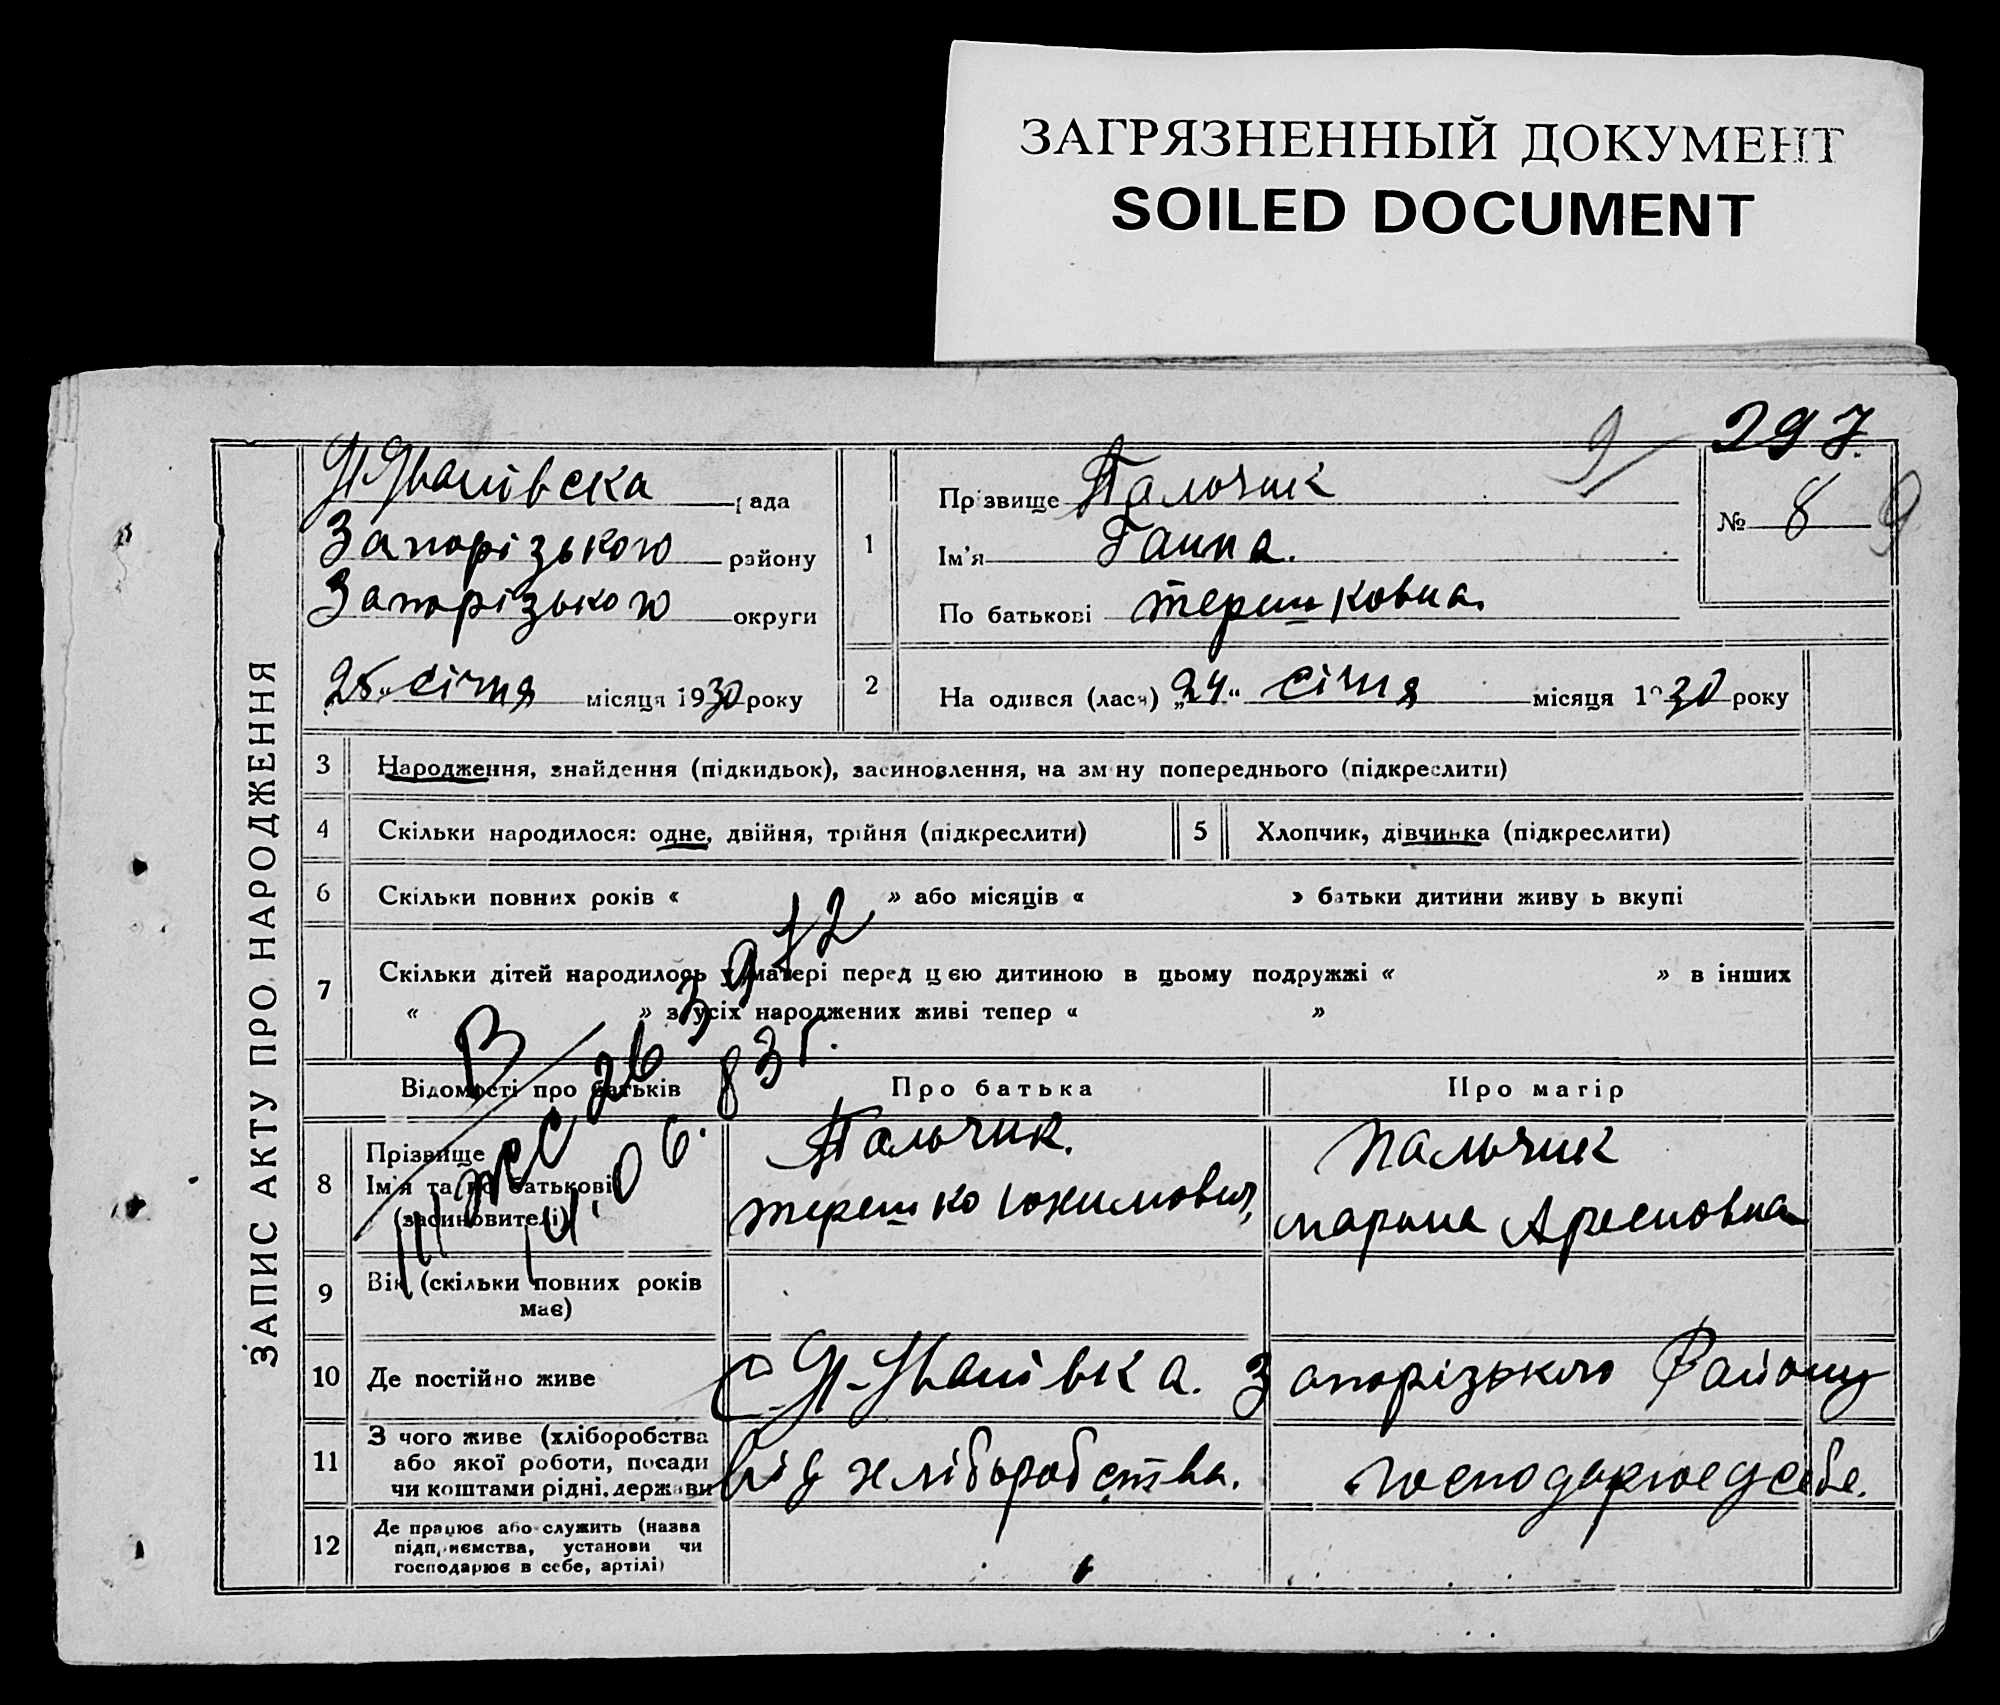 ЗАГРЯЗНЕННЫЙ ДОКУМЕНТ
SOILED DOCUMENT
297.
ЗАПИС АКТУ ПРО НАРОДЖЕННЯ
рада
Запорізького району
Запорізького округи
25 січня місяця 1930 року
1
Прізвище Пальчик
Ім'я Ганна.
По батькові Терешковна.
№ 8
9
2 На одився (лася) „24" січня місяця 1930 року
3 Народження, знайдення (підкидьок), засиновлення, на зміну попереднього (підкреслити)
4 Скільки народилося: одне, двійня, трійня (підкреслити)
5 Хлопчик, дівчинка (підкреслити)
6 Скільки повних років « » або місяців « » батьки дитини живу ь вкупі
7 Скільки дітей народилось у матері перед цією дитиною в цьому подружжі « » в інших
« » з усіх народжених живі тепер « »
Відомості про батьків Про батька Про матір
8 Прізвище
Ім'я та по батькові
(засиновителі)
Пальчик.
Терешко Юхимович,
Пальчик
Марина
9 Вік (скільки повних років
має)
10 Де постійно живе с. Запорізького Району
11 З чого живе (хліборобства
або якої роботи, посади
чи коштами рідні, держави
від хліборобства.
господарює у себе.
12 Де працює або служить (назва
підприємства, установи чи
господарює в себе, артілі)